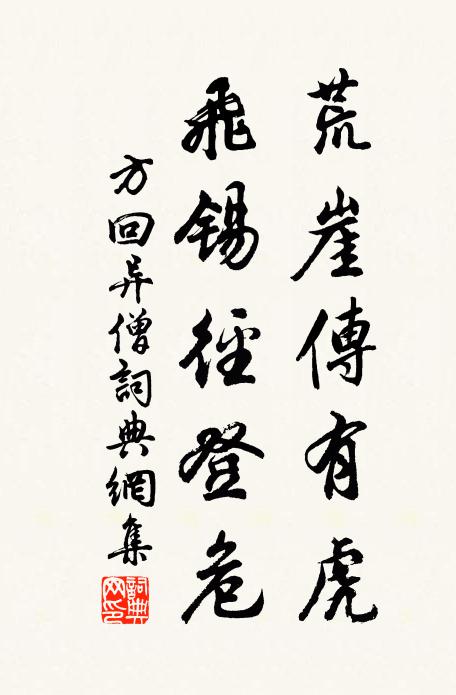 荒崖傳有虎
飛錫徑登危
方回异僧詞典網集
詞典網印